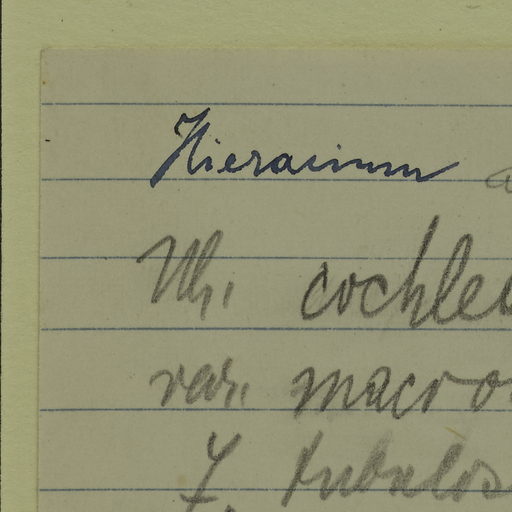 Hieracium a
cochlea
var. macro
f. tubulos